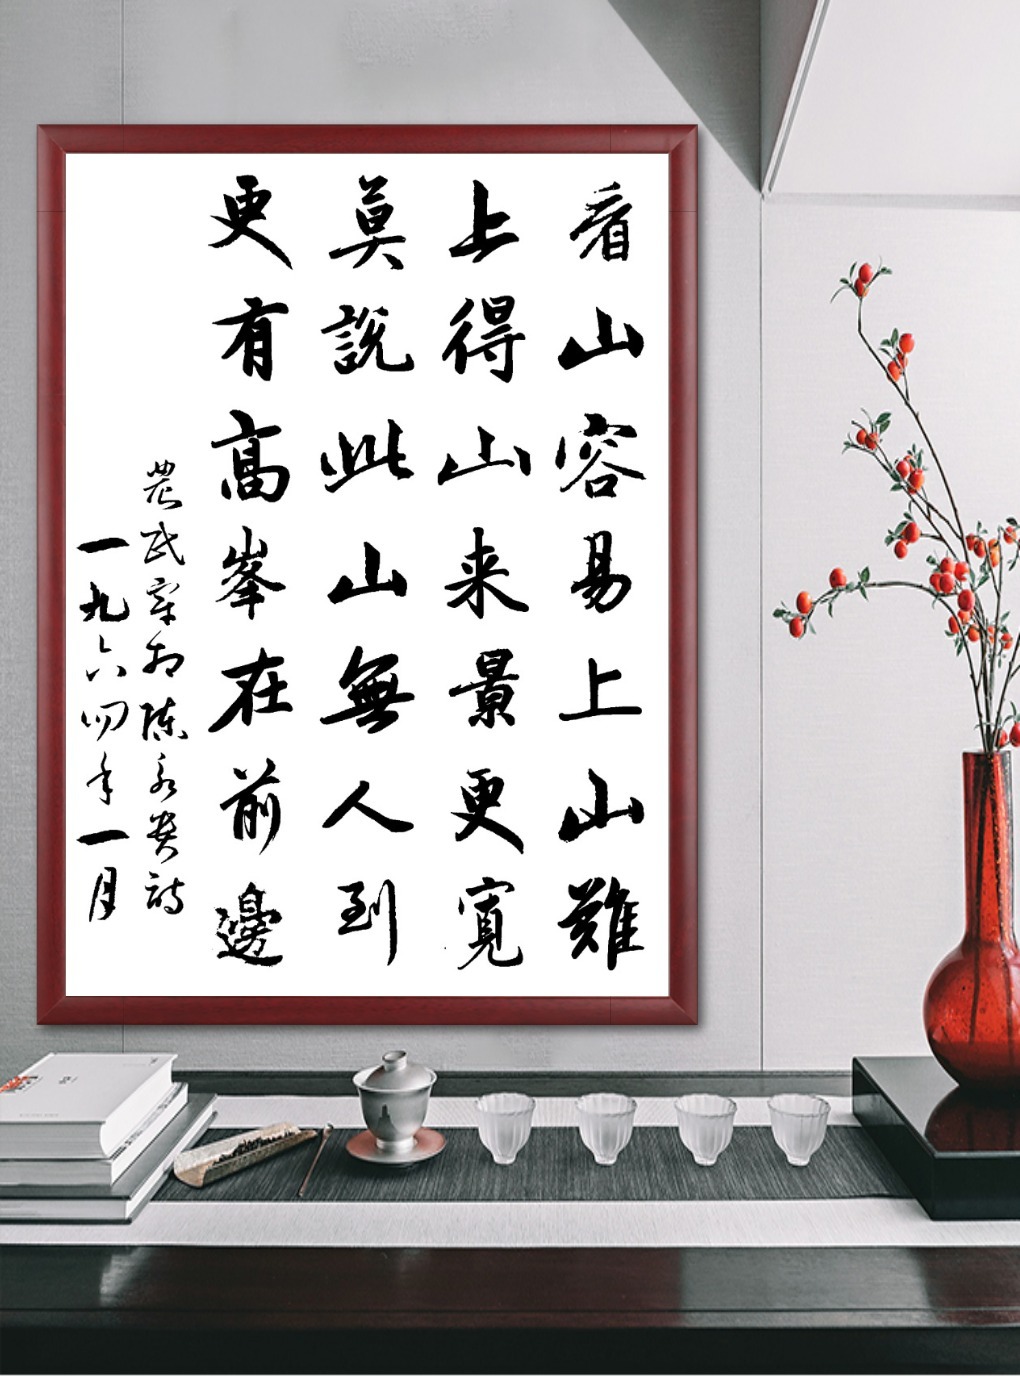 看山容易上山難
上得山来景更寬
莫說此山無人到
更有高峯在前邊
農民宰相陈永贵詩
一九六四年一月